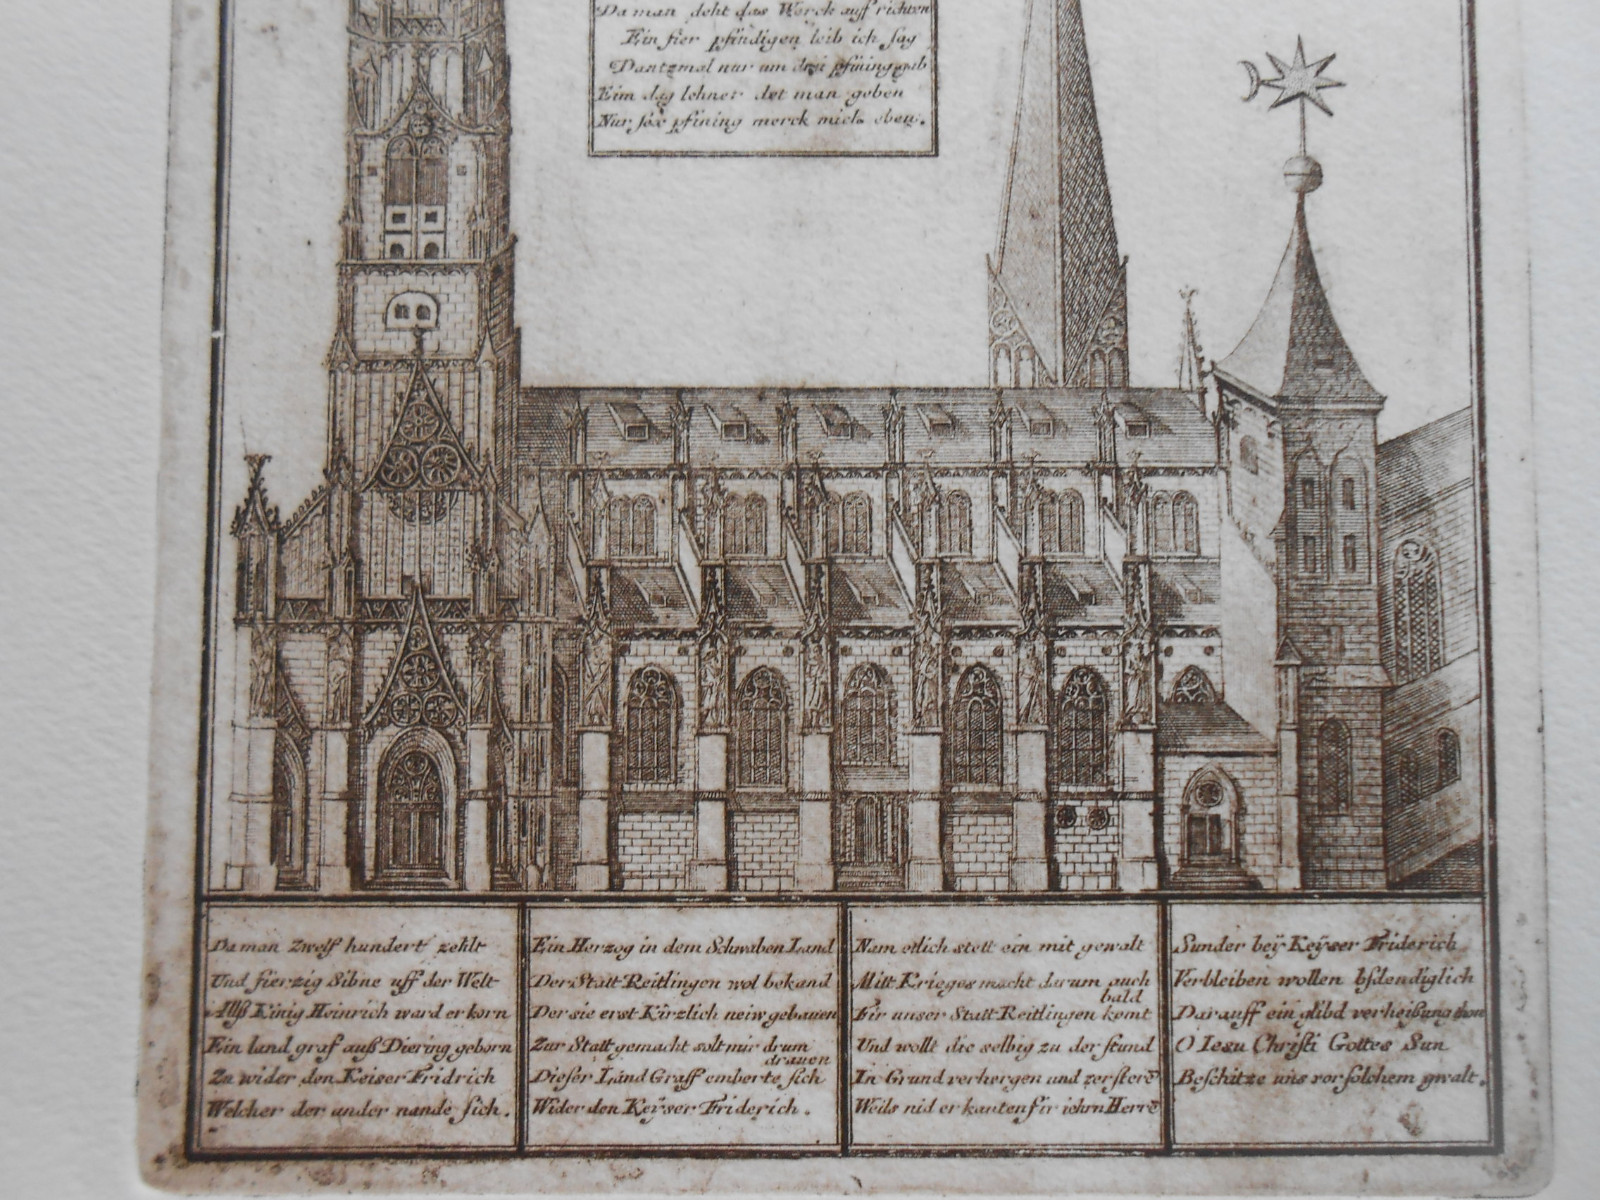 Da man deht das Werck auff richten
Ein fier pfindigen leib ich sag
Dantzmal nur um drei pfining gab
Eim dag lehner det man geben
Nur sex pfining merck mich eben.
Da man Zwelf hundert zehlt
Und fierzig Sibne uff der Welt
Allß Kinig Heinrich ward erkorn
Ein land graf auß Diering geborn
Zu wider den Keiser Fridrich
Welcher der ander nande sich.
Ein Herzog in dem Schwaben Land
Der Statt Reitlingen wol bekand
Der sie erst Kirzlich neiw gebauen
Zur Statt gemacht solt mir drum drauen
Dieser Land Graff emberte sich
Wider den Keÿser Friderich.
Nam etlich stett ein mit gewalt
Mitt Krieges macht darum auch bald
Fir unser Statt Reitlingen komt
Und wollt die selbig zu der stund
In Grund verhergen und zersterē
Weils nid erkanten fir iehrn Herrē
Sunder beÿ Keÿser Friderich
Verbleiben wollen bstendiglich
Darauff ein glibd verheißung thon
O Iesu Christi Gottes Sun
Beschitze uns vor solchem gwalt.